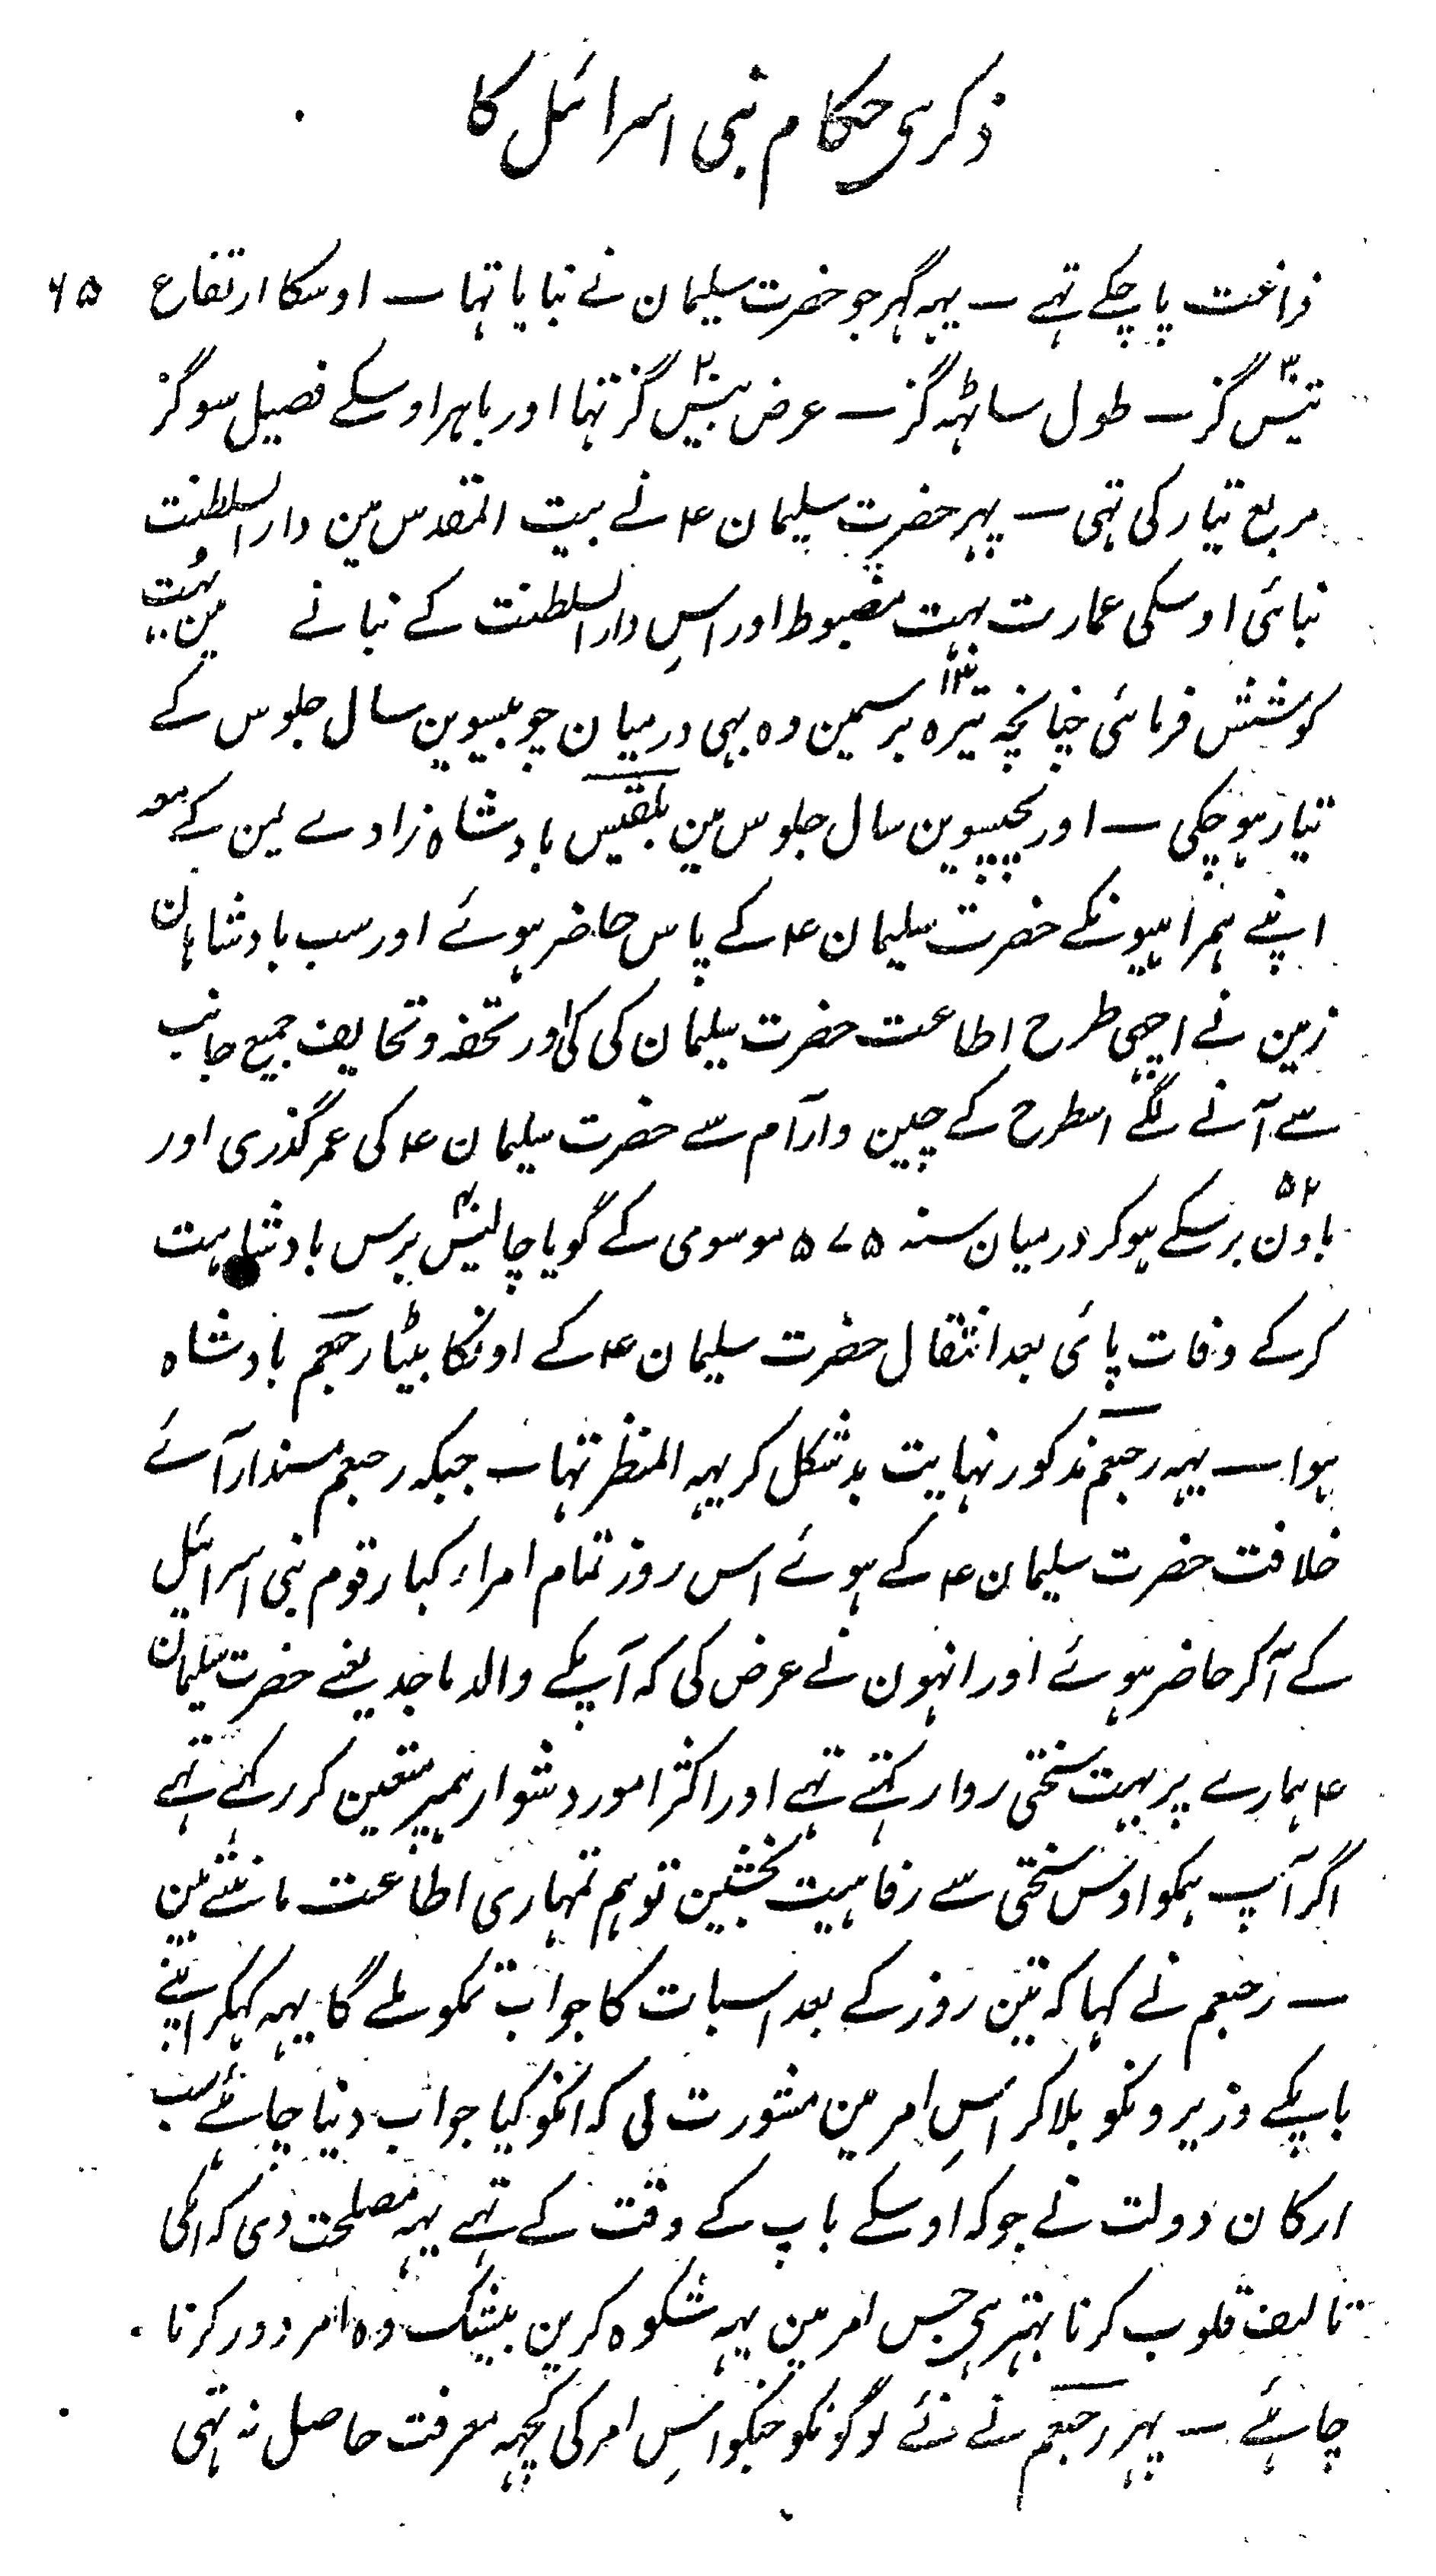 ذکر ہی حکام بنی اسرائیل کا
فراغت پا چکے تہے ــ یہہ گہر جو حضرت سلیمان نے بنایا تہا ــ اوسکا ارتفاع ۶۵
تیس ۳۰ گز ــ طول ساٹہہ گز ــ عرض بیس ۲۰ گز تہا اور باہر اوسکے فصیل سو گز
مربع تیار کی تہی ــ پہر حضرت سلیمان ۴ نے بیت المقدس مین دار السلطنت
بنائی اوسکی عمارت بہت مضبوط اور اسِ دار السلطنت کے بنانے مین بہُت
کوشش فرمائی چنانچہ تیرہ ۱۳ برسمین وہ بہی درمیان چوبیسیوین سال جلوس کے
تیار ہو چکی ــ اور پچیسوین سال جلوس مین بلقیس بادشاہ زادے یمن کے معہ
اپنے ہمراہیونکے حضرت سلیمان ۴ کے پاس حاضر ہوئے اور سب بادشاہان
زمین نے اچہی طرح اطاعت حضرت سلیمان کی کی اور تحفہ و تحایف جمیع جانب
سے آنے لگے اسطرح کے چین و آرام سے حضرت سلیمان ۴ کی عمر گذری اور
باون ۵۲ برسکے ہوکر درمیان سنہ ۵۷۵ موسوی کے گویا چالیس ۴۰ برس بادشاہت
کرکے وفات پائی بعد انتقال حضرت سلیمان ۴ کے اونکا بیٹا رحبعم بادشاہ
ہوا ــ یہہ رحبعم مذکور نہایت بد شکل کریہہ المنظر تہا ــ جبکہ رحبعم مسند آرائے
خلافت حضرت سلیمان ۴ کے ہوئے اس روز تمام امراء کبار قوم بنی اسرائیل
کے آکر حاضر ہوئے اور انہون نے عرض کی کہ آپکے والد ماجد یعنے حضرت سلیمان
۴ ہمارے پر بہت سختی روا رکہتے تہے اور اکثر امور دشوار ہمپر متعین کر رکہے تہے
اگر آپ ہمکو اوس سختی سے رفاہیت بخشین تو ہم تمہاری اطاعت مانتے ہین
ــ رحبعم نے کہا کہ تین روز کے بعد اسبات کا جواب تمکو ملے گا یہہ کہکر اپنے
باپکے وزیرونکو بلا کر اسِ امر مین مشورت لی کہ انکو کیا جواب دینا چاہئے سب
ارکان دولت نے جو کہ اوسکے باپ کے وقت کے تہے یہہ مصلحت دی کہ انکی
تالیف قلوب کرنا بہتر ہی جس امر مین یہہ شکوہ کرین بیشک وہ امر دور کرنا
چاہئے ــ پہر رحبعم نے نئے لوگونکو جنکو اسِ امر کی کچہہ معرفت حاصل نہ تہی